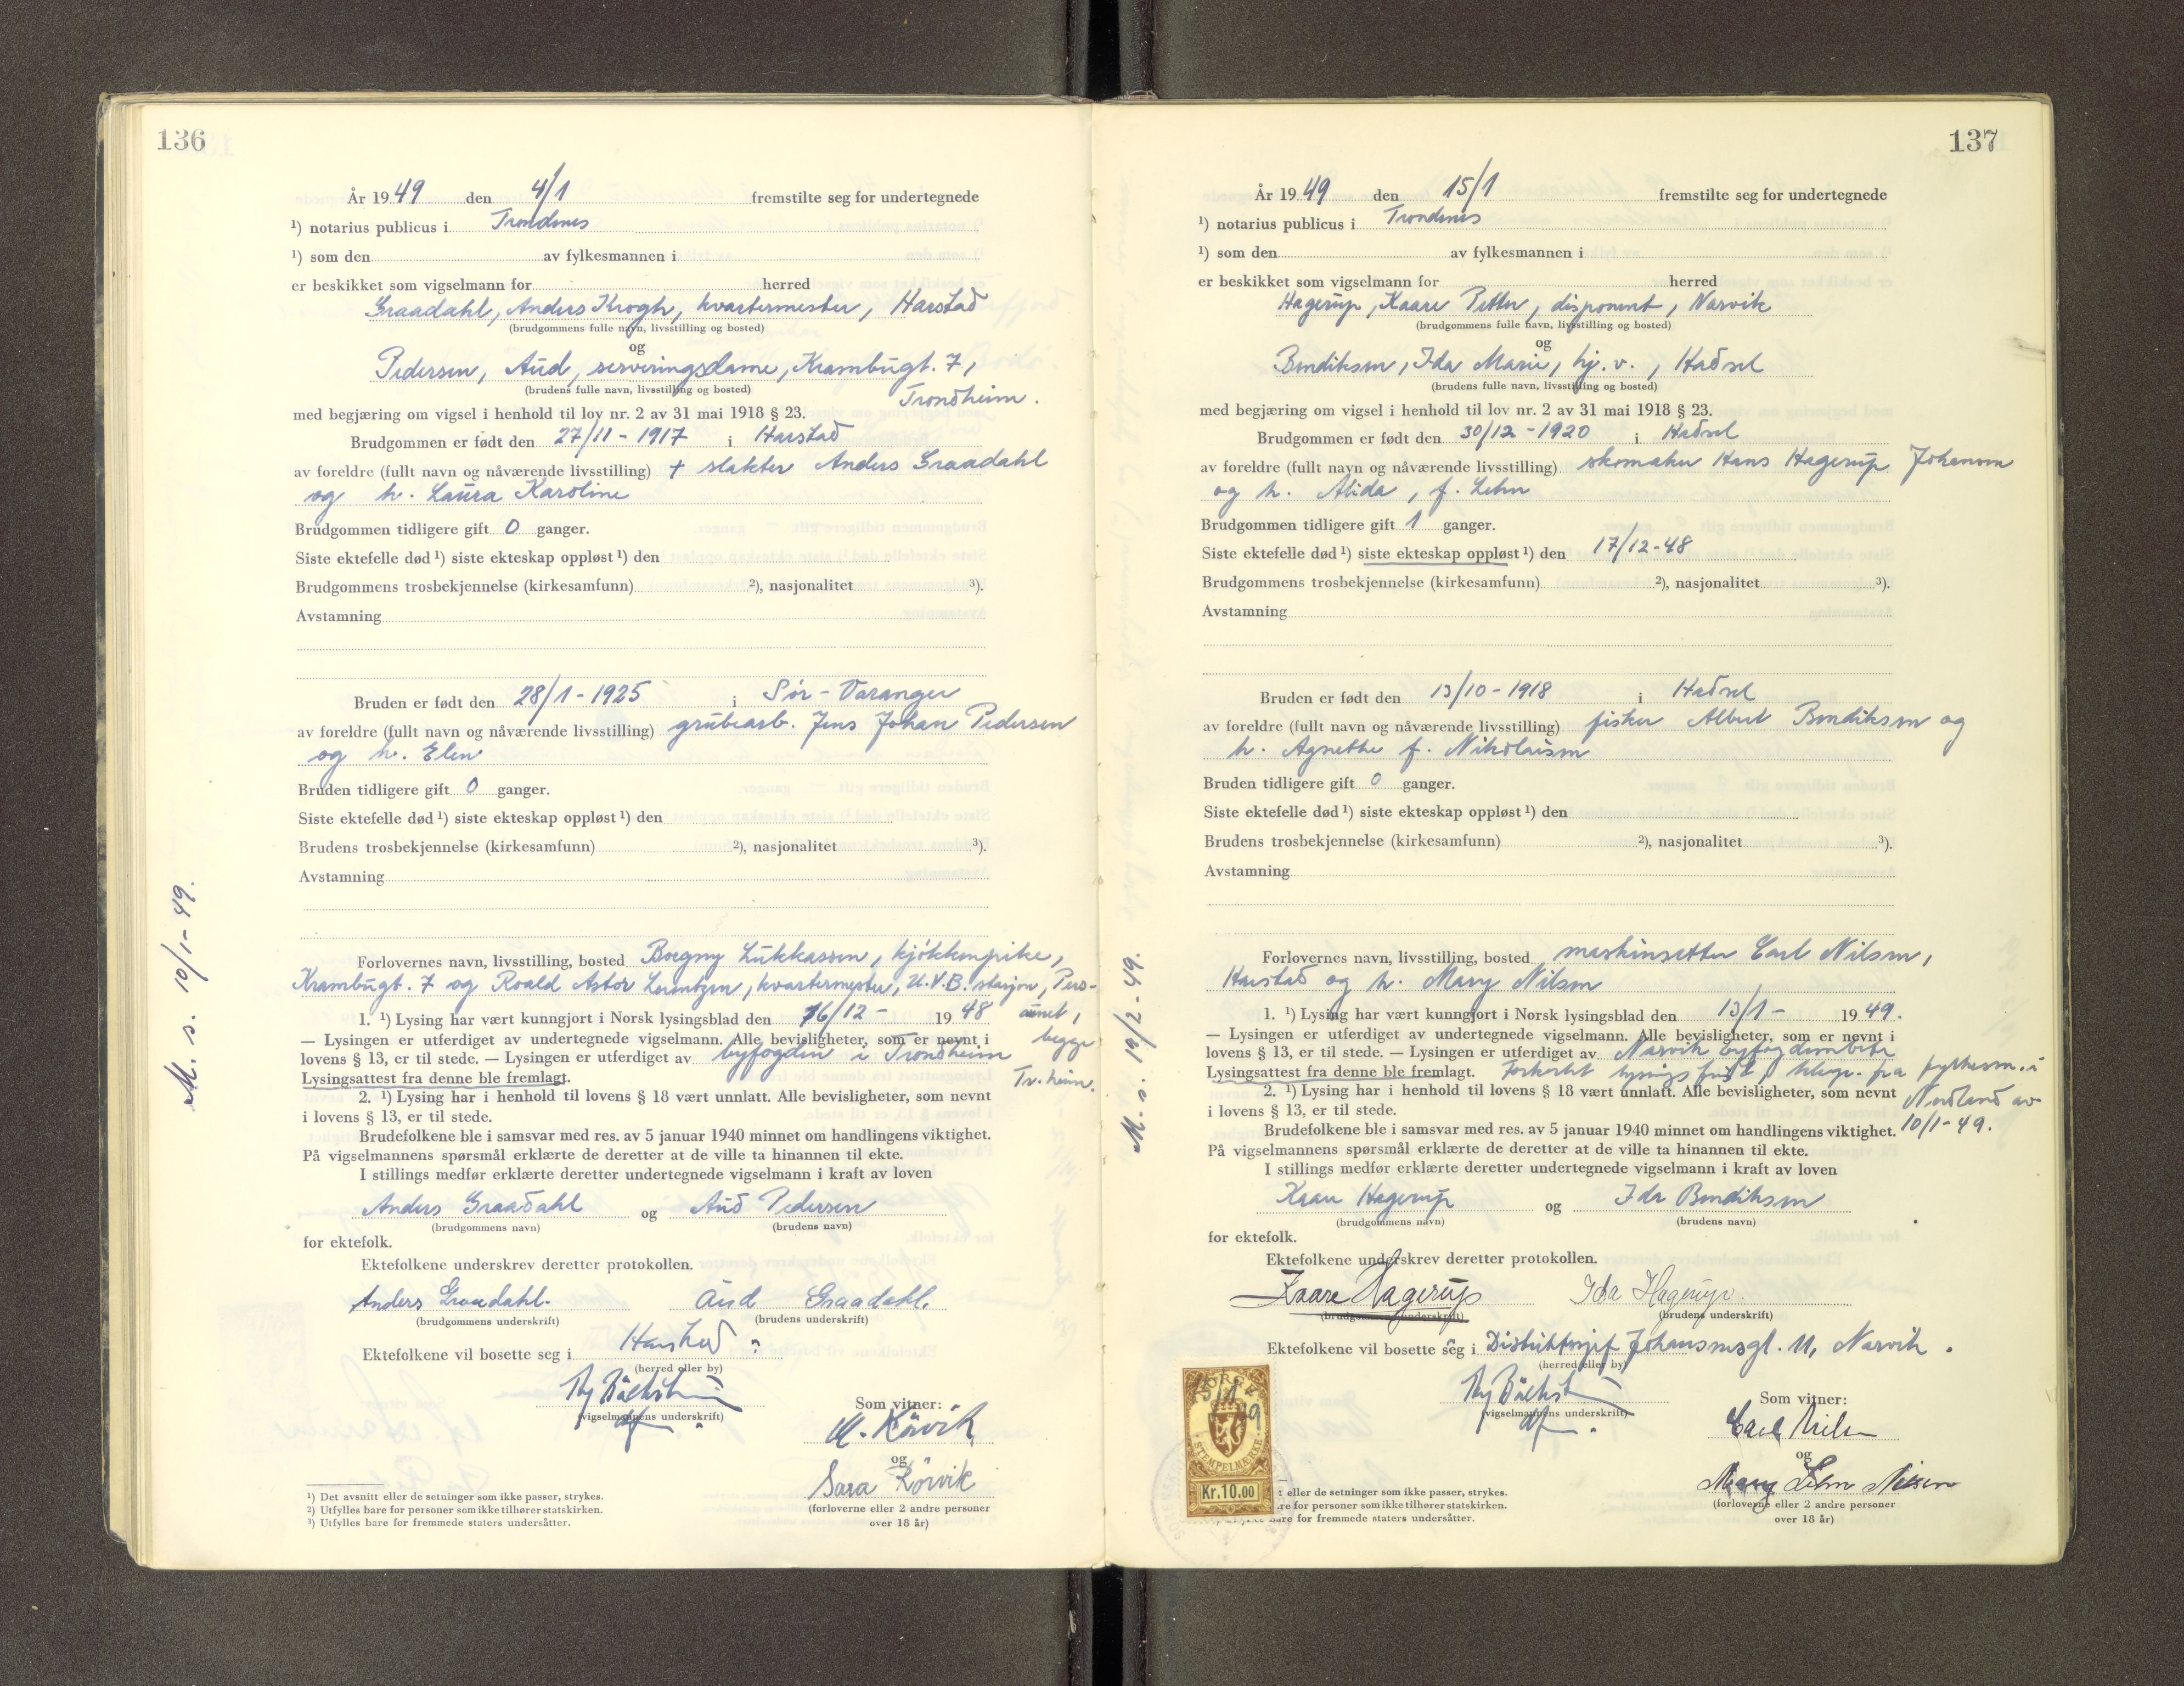 136
År 1949 den 4/1 fremstilte seg for undertegnede
¹) notarius publicus i Trondenes
¹) som den av fylkesmannen i
er beskikket som vigselmann for herred
Graadahl, Anders Krogh, kvartermester, Harstad
(brudgommens fulle navn, livsstilling og bosted)
og
Pedersen, Aud, serveringsdame, Krambugt. 7,
(brudens fulle navn, livsstilling og bosted)
Trondheim.
med begjæring om vigsel i henhold til lov nr. 2 av 31 mai 1918 § 23.
Brudgommen er født den 27/11-1917 i Harstad
av foreldre (fullt navn og nåværende livsstilling) + slakter Anders Graadahl
og h. Laura Karoline
Brudgommen tidligere gift 0 ganger.
Siste ektefelle død ¹) siste ekteskap oppløst ¹) den
Brudgommens trosbekjennelse (kirkesamfunn) ²), nasjonalitet ³).
Avstamning
Bruden er født den 28/1-1925 i Sør-Varanger
av foreldre (fullt navn og nåværende livsstilling) grubearb. Jens Johan Pedersen
og h. Elen
Bruden tidligere gift 0 ganger.
Siste ektefelle død ¹) siste ekteskap oppløst ¹) den
Brudens trosbekjennelse (kirkesamfunn) ²), nasjonalitet ³).
Avstamning
Forlovernes navn, livsstilling, bosted Borgny Lukkassen, kjøkkenpike,
Krambugt. 7 og Roald Astor Lorentzen, kvartermester, U.V.B. stasjon, Pers-
aunet,
1. ¹) Lysing har vært kunngjort i Norsk lysingsblad den 16/12- 1948
— Lysingen er utferdiget av undertegnede vigselmann. Alle bevisligheter, som er nevnt i begge
lovens § 13, er til stede. — Lysingen er utferdiget av byfogden i Trondheim
Tr.heim.
Lysingsattest fra denne ble fremlagt.
2. ¹) Lysing har i henhold til lovens § 18 vært unnlatt. Alle bevisligheter, som nevnt
i lovens § 13, er til stede.
Brudefolkene ble i samsvar med res. av 5 januar 1940 minnet om handlingens viktighet.
På vigselmannens spørsmål erklærte de deretter at de ville ta hinannen til ekte.
I stillings medfør erklærte deretter undertegnede vigselmann i kraft av loven
Anders Graadahl og Aud Pedersen
(brudgommens navn) (brudens navn)
for ektefolk.
Ektefolkene underskrev deretter protokollen.
Anders Graadahl. Aud Graadahl.
(brudgommens underskrift) (brudens underskrift)
Ektefolkene vil bosette seg i Harstad
(herred eller by)
(vigselmannens underskrift)
Som vitner:
M. Rörvik
og
Sara Rörvik
(forloverne eller 2 andre personer
over 18 år)
¹) Det avsnitt eller de setninger som ikke passer, strykes.
²) Utfylles bare for personer som ikke tilhører statskirken.
³) Utfylles bare for fremmede staters undersåtter.
M. s. 10/1-49.
137
År 1949 den 15/1 fremstilte seg for undertegnede
¹) notarius publicus i Trondenes
¹) som den av fylkesmannen i
er beskikket som vigselmann for herred
Hagerup, Kaare Petter, disponent, Narvik
(brudgommens fulle navn, livsstilling og bosted)
og
Bendiksen, Ida Marie, hj. v., Hadsel
(brudens fulle navn, livsstilling og bosted)
med begjæring om vigsel i henhold til lov nr. 2 av 31 mai 1918 § 23.
Brudgommen er født den 30/12-1920 i Hadsel
av foreldre (fullt navn og nåværende livsstilling) skomaker Hans Hagerup Johansen
og h. Alida, f. Lehn
Brudgommen tidligere gift 1 ganger.
Siste ektefelle død ¹) siste ekteskap oppløst ¹) den 17/12-48
Brudgommens trosbekjennelse (kirkesamfunn) ²), nasjonalitet ³).
Avstamning
Bruden er født den 13/10-1918 i Hadsel
av foreldre (fullt navn og nåværende livsstilling) fisker Albert Bendiksen og
h. Agnethe f. Nikolaisen
Bruden tidligere gift 0 ganger.
Siste ektefelle død ¹) siste ekteskap oppløst ¹) den
Brudens trosbekjennelse (kirkesamfunn) ²), nasjonalitet ³).
Avstamning
Forlovernes navn, livsstilling, bosted maskinsetter Carl Nilsen,
Harstad og h. Mary Nilsen
1. ¹) Lysing har vært kunngjort i Norsk lysingsblad den 13/1- 1949.
— Lysingen er utferdiget av undertegnede vigselmann. Alle bevisligheter, som er nevnt i
lovens § 13, er til stede. — Lysingen er utferdiget av Narvik byfogdembete
Lysingsattest fra denne ble fremlagt. Forkortet lysingsfrist, fra fylkesm. i
Nordland av
10/1-49.
2. ¹) Lysing har i henhold til lovens § 18 vært unnlatt. Alle bevisligheter, som nevnt
i lovens § 13, er til stede.
Brudefolkene ble i samsvar med res. av 5 januar 1940 minnet om handlingens viktighet.
På vigselmannens spørsmål erklærte de deretter at de ville ta hinannen til ekte.
I stillings medfør erklærte deretter undertegnede vigselmann i kraft av loven
Kaare Hagerup og Ida Bendiksen
(brudgommens navn) (brudens navn)
for ektefolk.
Ektefolkene underskrev deretter protokollen.
Kaare Hagerup Ida Hagerup.
(brudgommens underskrift) (brudens underskrift)
Ektefolkene vil bosette seg i Distriktssjef Johansensgt. 11, Narvik.
(herred eller by)
(vigselmannens underskrift)
Som vitner:
Carl Nilsen
og
Mary Lehn Nilsen
(forloverne eller 2 andre personer
over 18 år)
NORGE
STEMPELMERKE
Kr.10.00
eller de setninger som ikke passer, strykes.
re for personer som ikke tilhører statskirken.
bare for fremmede staters undersåtter.
M. s. 19/2-49.